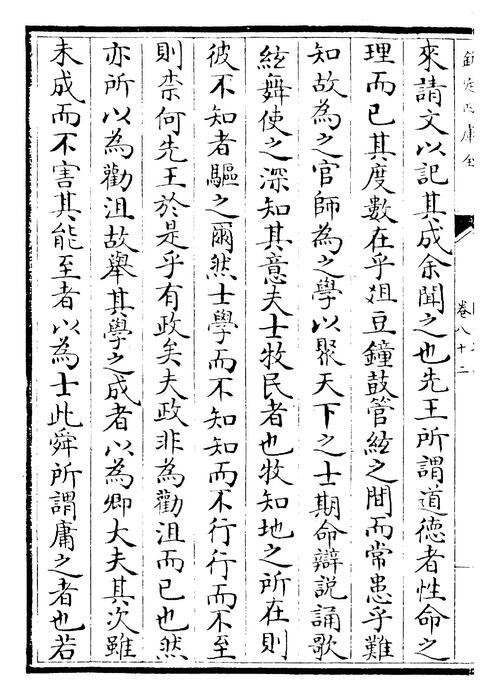 欽定四庫全
卷八十二
來請文以記其成余聞之也先王所謂道德者性命之
理而已其度數在乎俎豆鐘鼓管絃之間而常患乎難
知故為之官師為之學以聚天下之士期命辯說誦歌
絃舞使之深知其意夫士牧民者也牧知地之所在則
彼不知者驅之爾然士學而不知知而不行行而不至
則柰何先王於是乎有政矣夫政非為勸沮而已也然
亦所以為勸沮故舉其學之成者以為卿大夫其次雖
未成而不害其能至者以為士此舜所謂庸之者也若